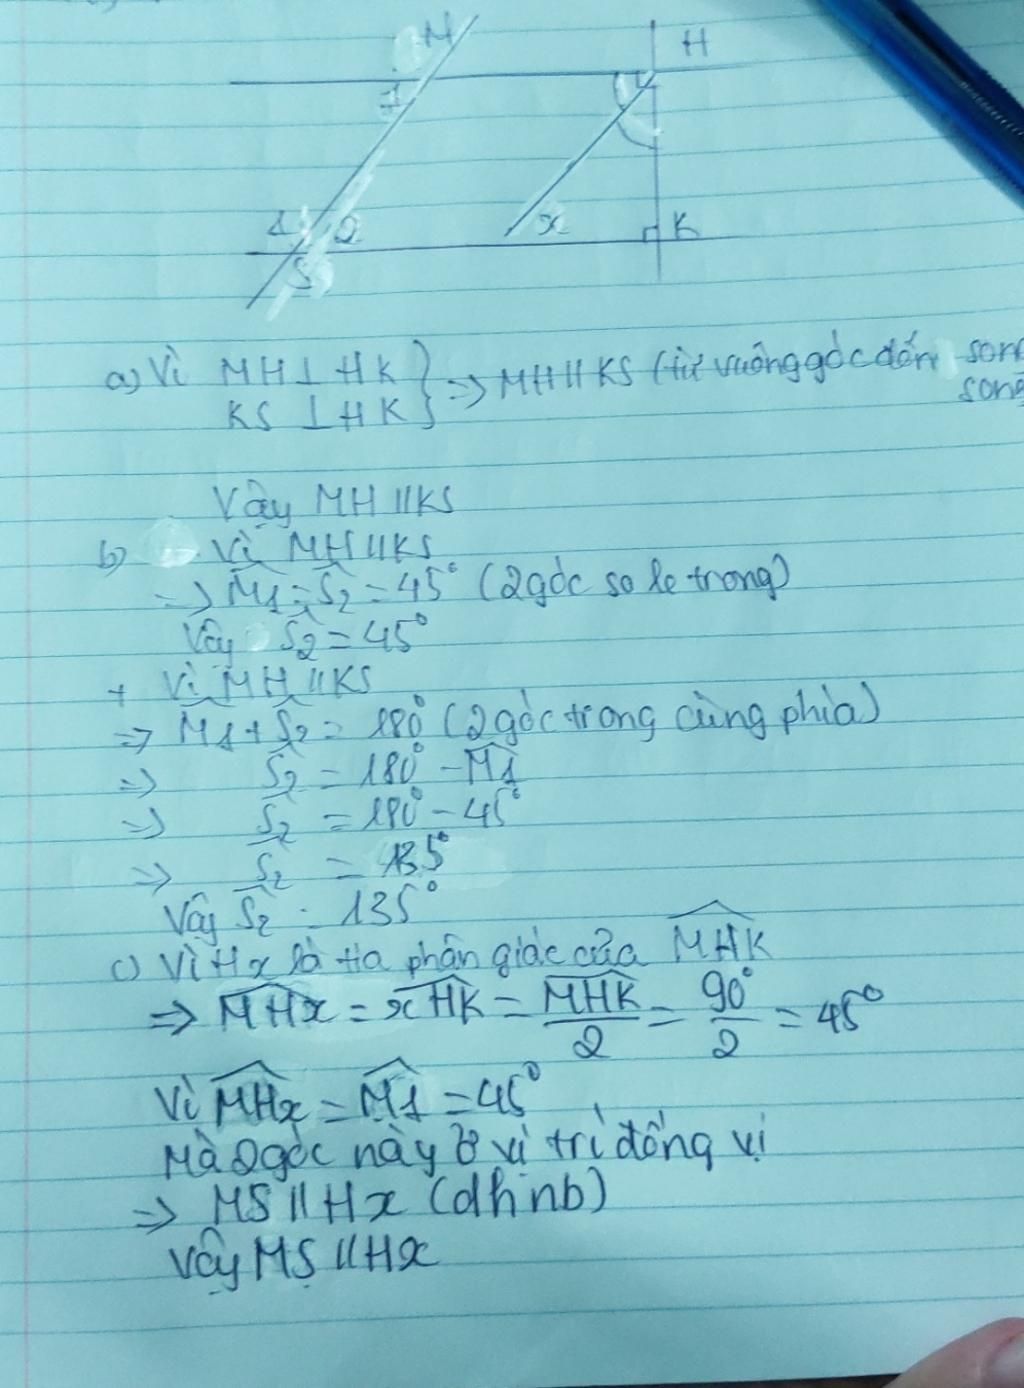 M
H
1
1
2
x
K
S
a) Vì MH ⊥ HK
KS ⊥ HK } => MH // KS (từ vuông góc đến song
song
Vậy MH // KS
b) Vì MH // KS
=> M̂1 = Ŝ2 = 45° (2 góc so le trong)
Vậy Ŝ2 = 45°
+ Vì MH // KS
=> M̂1 + Ŝ2 = 180° (2 góc trong cùng phía)
=> Ŝ2 = 180° - M̂1
=> Ŝ2 = 180° - 45°
=> Ŝ2 = 135°
Vậy Ŝ2 = 135°
c) Vì Hx là tia phân giác của M̂HK
=> M̂Hx = x̂HK = M̂HK/2 = 90°/2 = 45°
Vì M̂Hx = M̂1 = 45°
Mà 2 góc này ở vị trí đồng vị
=> MS // Hx (dhnb)
Vậy MS // Hx